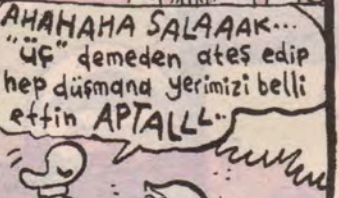 AHAHAHA SALAAAK...
"ÜÇ" demeden ateş edip
hep düşmana yerimizi belli
ettin APTALLL..